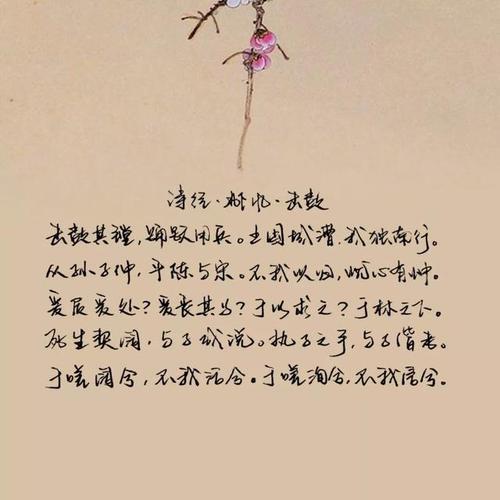 诗经·邶风·击鼓
击鼓其镗，踊跃用兵。土国城漕，我独南行。
从孙子仲，平陈与宋。不我以归，忧心有忡。
爰居爰处？爰丧其马？于以求之？于林之下。
死生契阔，与子成说。执子之手，与子偕老。
于嗟阔兮，不我活兮。于嗟洵兮，不我信兮。